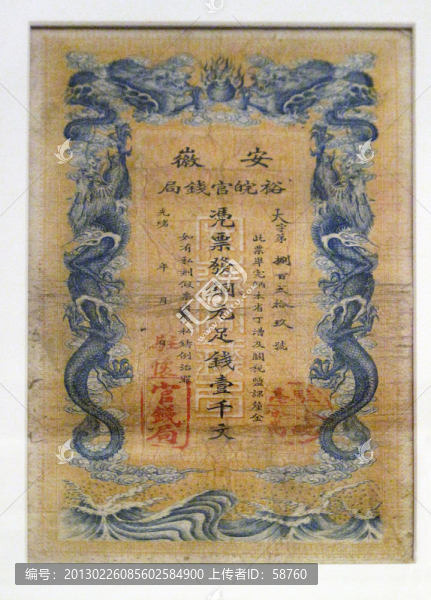 安徽
裕皖官錢局
大字第捌百弍拾玖號
此票準完納本省丁漕及關稅鹽課釐金
憑票發銅元足錢壹千文
如有私刻假票照私鑄例治罪
光緒年月日
官錢局
编号：20130226085602584900 上传者ID：58760